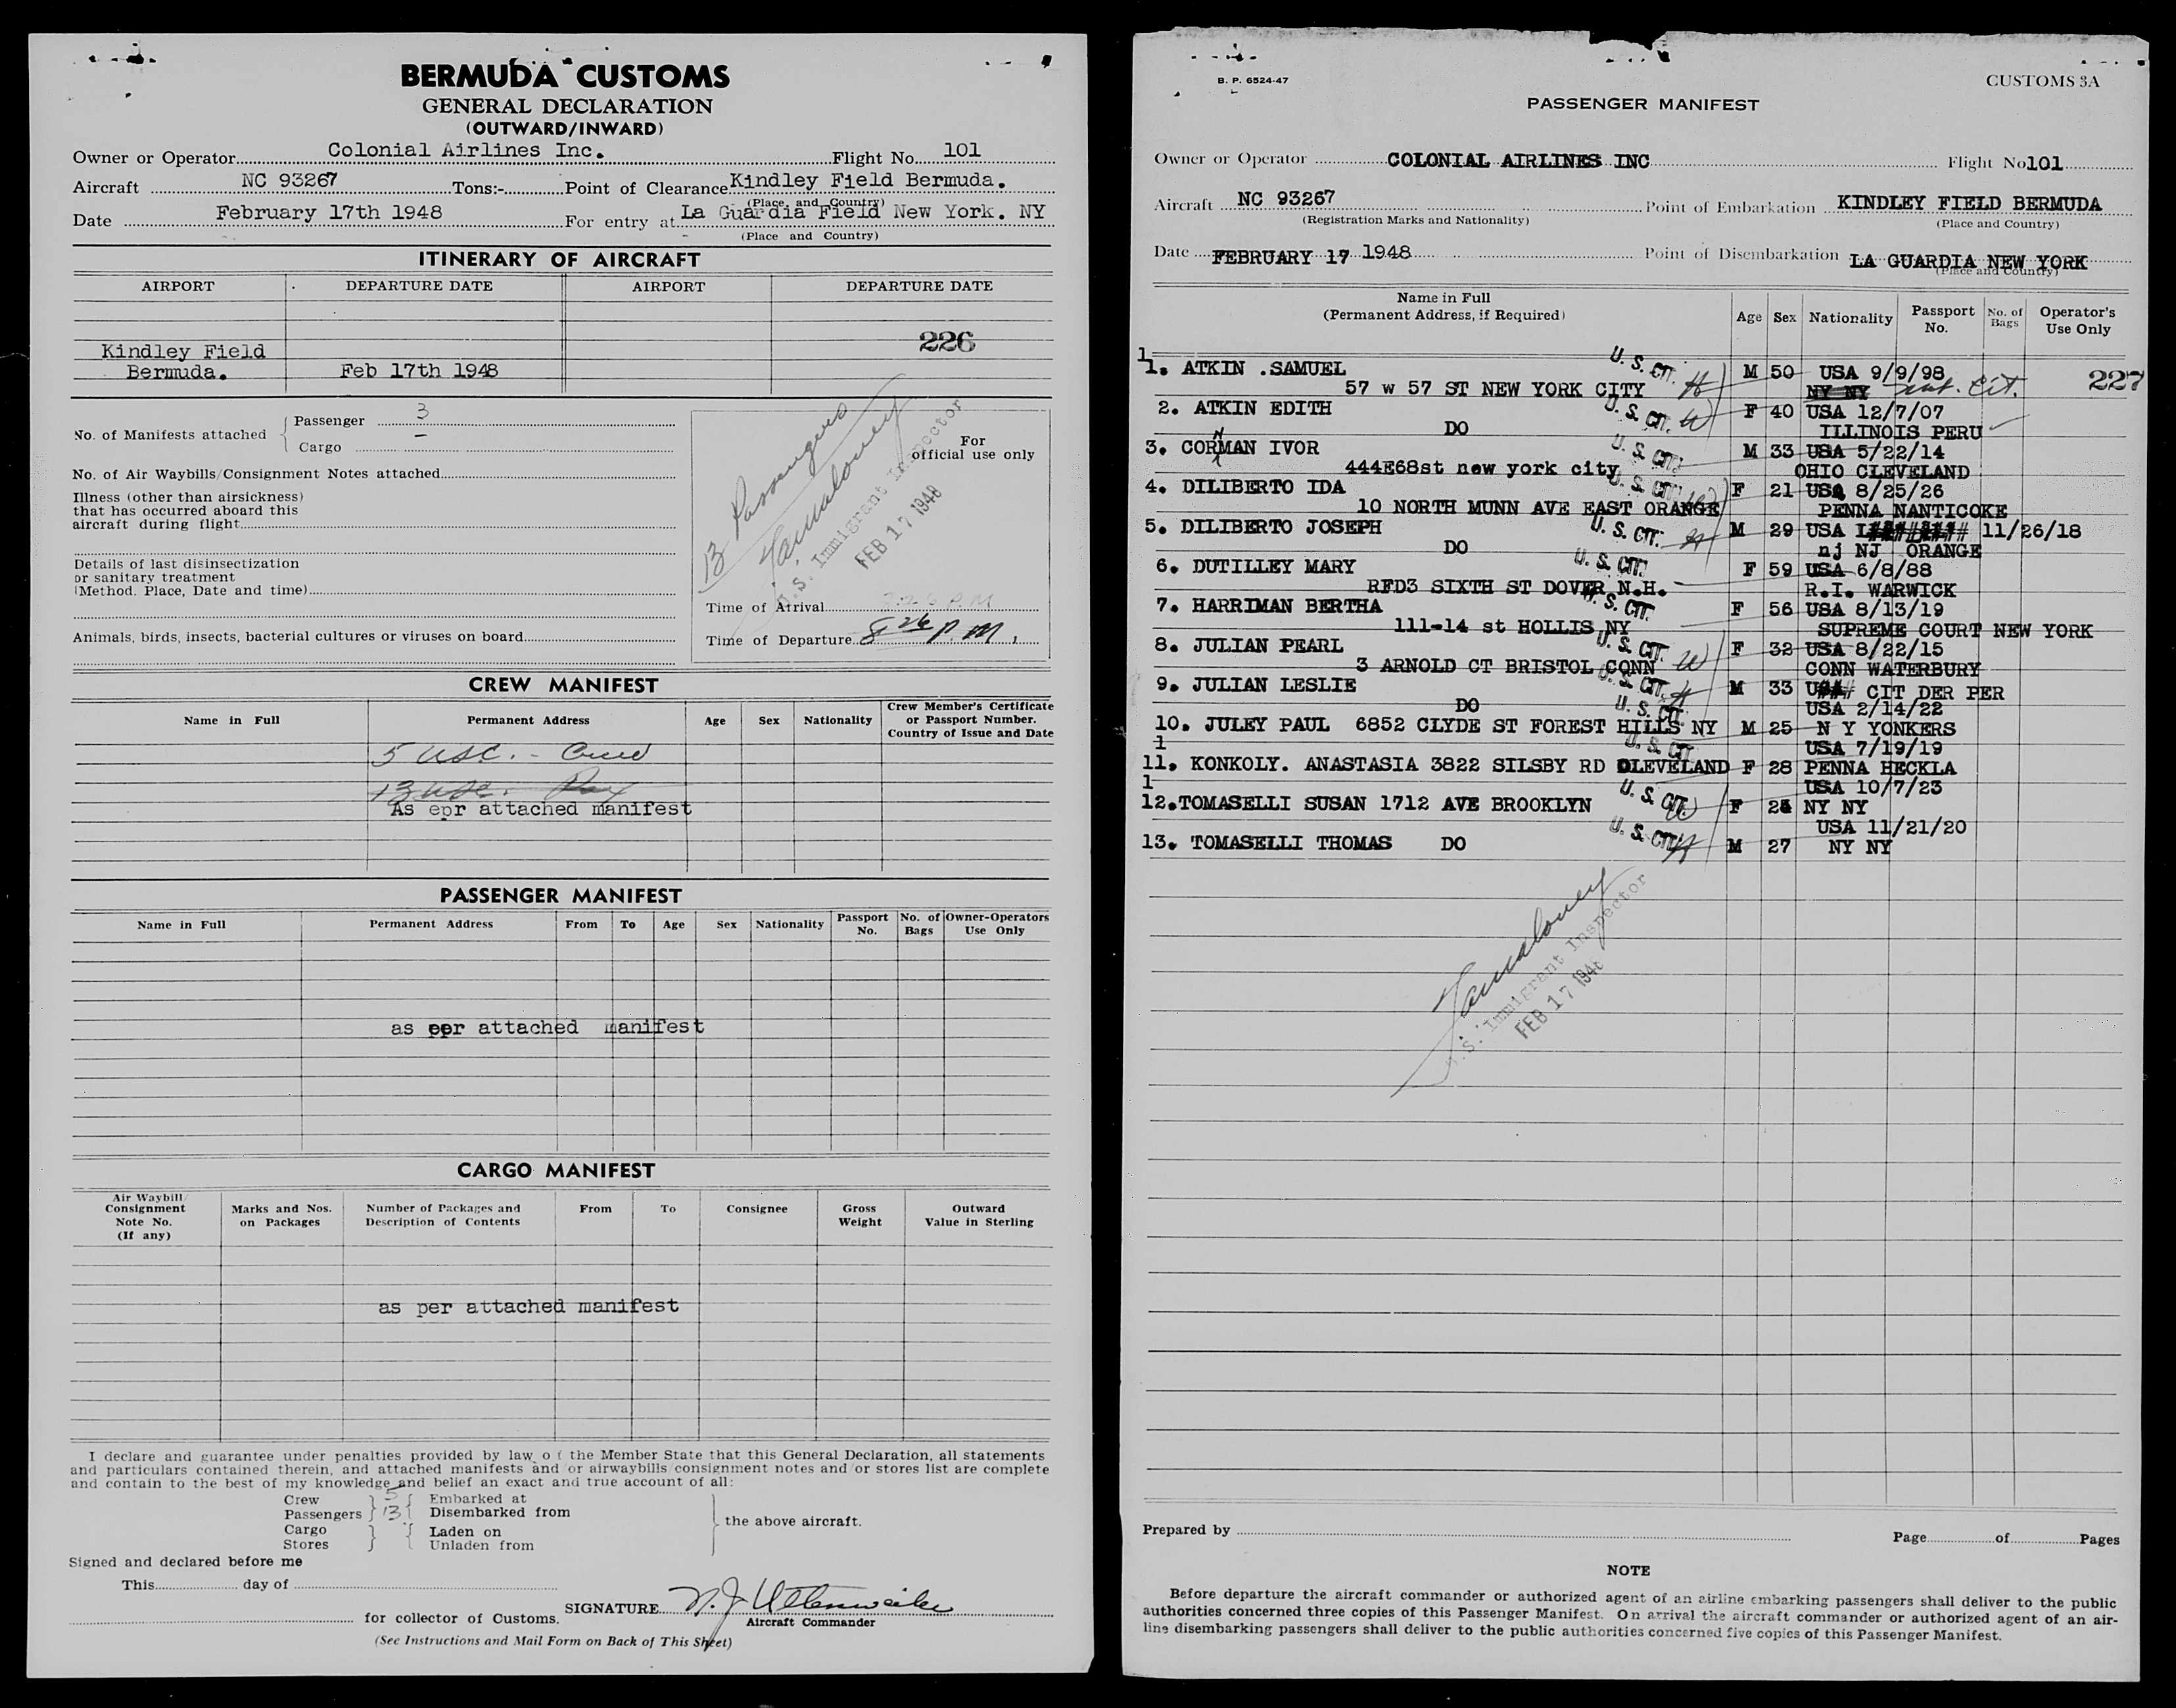 BERMUDA CUSTOMS
GENERAL DECLARATION
(OUTWARD/INWARD)
Owner or Operator Colonial Airlines Inc. Flight No. 101
Aircraft NC 93267 Tons:- Point of Clearance Kindley Field Bermuda.
(Place and Country)
Date February 17th 1948 For entry at La Guardia Field New York. NY
(Place and Country)
ITINERARY OF AIRCRAFT
AIRPORT DEPARTURE DATE AIRPORT DEPARTURE DATE
226
Kindley Field
Bermuda. Feb 17th 1948
No. of Manifests attached
Passenger 3
Cargo —
No. of Air Waybills/Consignment Notes attached
Illness (other than airsickness)
that has occurred aboard this
aircraft during flight
Details of last disinsectization
or sanitary treatment
(Method. Place, Date and time)
Animals, birds, insects, bacterial cultures or viruses on board
For
official use only
13 Passengers
U.S. Immigrant Inspector
FEB 17 1948
Time of Arrival
Time of Departure 8 26 P.M.
CREW MANIFEST
Name in Full Permanent Address Age Sex Nationality Crew Member's Certificate
or Passport Number.
Country of Issue and Date
5 USC. - Crew
13 USC. Pax
As epr attached manifest
PASSENGER MANIFEST
Name in Full Permanent Address From To Age Sex Nationality Passport No. No. of Bags Owner-Operators Use Only
as epr attached manifest
CARGO MANIFEST
Air Waybill/
Consignment
Note No.
(If any)
Marks and Nos.
on Packages
Number of Packages and
Description of Contents
From To Consignee
Gross
Weight
Outward
Value in Sterling
as per attached manifest
I declare and guarantee under penalties provided by law of the Member State that this General Declaration, all statements
and particulars contained therein, and attached manifests and/or airwaybills/consignment notes and/or stores list are complete
and contain to the best of my knowledge and belief an exact and true account of all:
Crew 5 Embarked at
Passengers 13 Disembarked from
the above aircraft.
Cargo Laden on
Stores Unladen from
Signed and declared before me
This day of
for collector of Customs.
SIGNATURE
Aircraft Commander
(See Instructions and Mail Form on Back of This Sheet)
B. P. 6524-47
CUSTOMS 3A
PASSENGER MANIFEST
Owner or Operator COLONIAL AIRLINES INC Flight No 101
Aircraft NC 93267 Point of Embarkation KINDLEY FIELD BERMUDA
(Registration Marks and Nationality) (Place and Country)
Date FEBRUARY 17 1948 Point of Disembarkation LA GUARDIA NEW YORK
(Place and Country)
Name in Full
(Permanent Address, if Required)
Age Sex Nationality Passport No. No. of Bags Operator's Use Only
1
1. ATKIN .SAMUEL U. S. CIT. H M 50 USA 9/9/98 227
57 w 57 ST NEW YORK CITY NY NY nat. cit.
2. ATKIN EDITH U. S. CIT. W F 40 USA 12/7/07
DO ILLINOIS PERU
3. CORMAN IVOR N U. S. CIT. M 33 USA 5/22/14
444E68st new york city OHIO CLEVELAND
4. DILIBERTO IDA U. S. CIT. W F 21 USA 8/25/26
10 NORTH MUNN AVE EAST ORANGE PENNA NANTICOKE
5. DILIBERTO JOSEPH U. S. CIT. H M 29 USA 11/26/18
DO nj NJ ORANGE
6. DUTILLEY MARY U. S. CIT. F 59 USA 6/8/88
RFD3 SIXTH ST DOVER N.H. R.I. WARWICK
7. HARRIMAN BERTHA U. S. CIT. F 56 USA 8/13/19
111-14 st HOLLIS NY SUPREME COURT NEW YORK
8. JULIAN PEARL U. S. CIT. W F 32 USA 8/22/15
3 ARNOLD CT BRISTOL CONN CONN WATERBURY
9. JULIAN LESLIE U. S. CIT. H M 33 CIT DER PER
DO USA 2/14/22
10. JULEY PAUL 6852 CLYDE ST FOREST HILLS NY U. S. CIT. M 25 N Y YONKERS
1 USA 7/19/19
11. KONKOLY. ANASTASIA 3822 SILSBY RD CLEVELAND U. S. CIT F 28 PENNA HECKLA
1 USA 10/7/23
12.TOMASELLI SUSAN 1712 AVE BROOKLYN U. S. CIT. W F 24 NY NY
USA 11/21/20
13. TOMASELLI THOMAS DO U. S. CIT. H M 27 NY NY
U.S. Immigrant Inspector
FEB 17 1948
Prepared by
Page of Pages
NOTE
Before departure the aircraft commander or authorized agent of an airline embarking passengers shall deliver to the public
authorities concerned three copies of this Passenger Manifest. On arrival the aircraft commander or authorized agent of an air-
line disembarking passengers shall deliver to the public authorities concerned five copies of this Passenger Manifest.